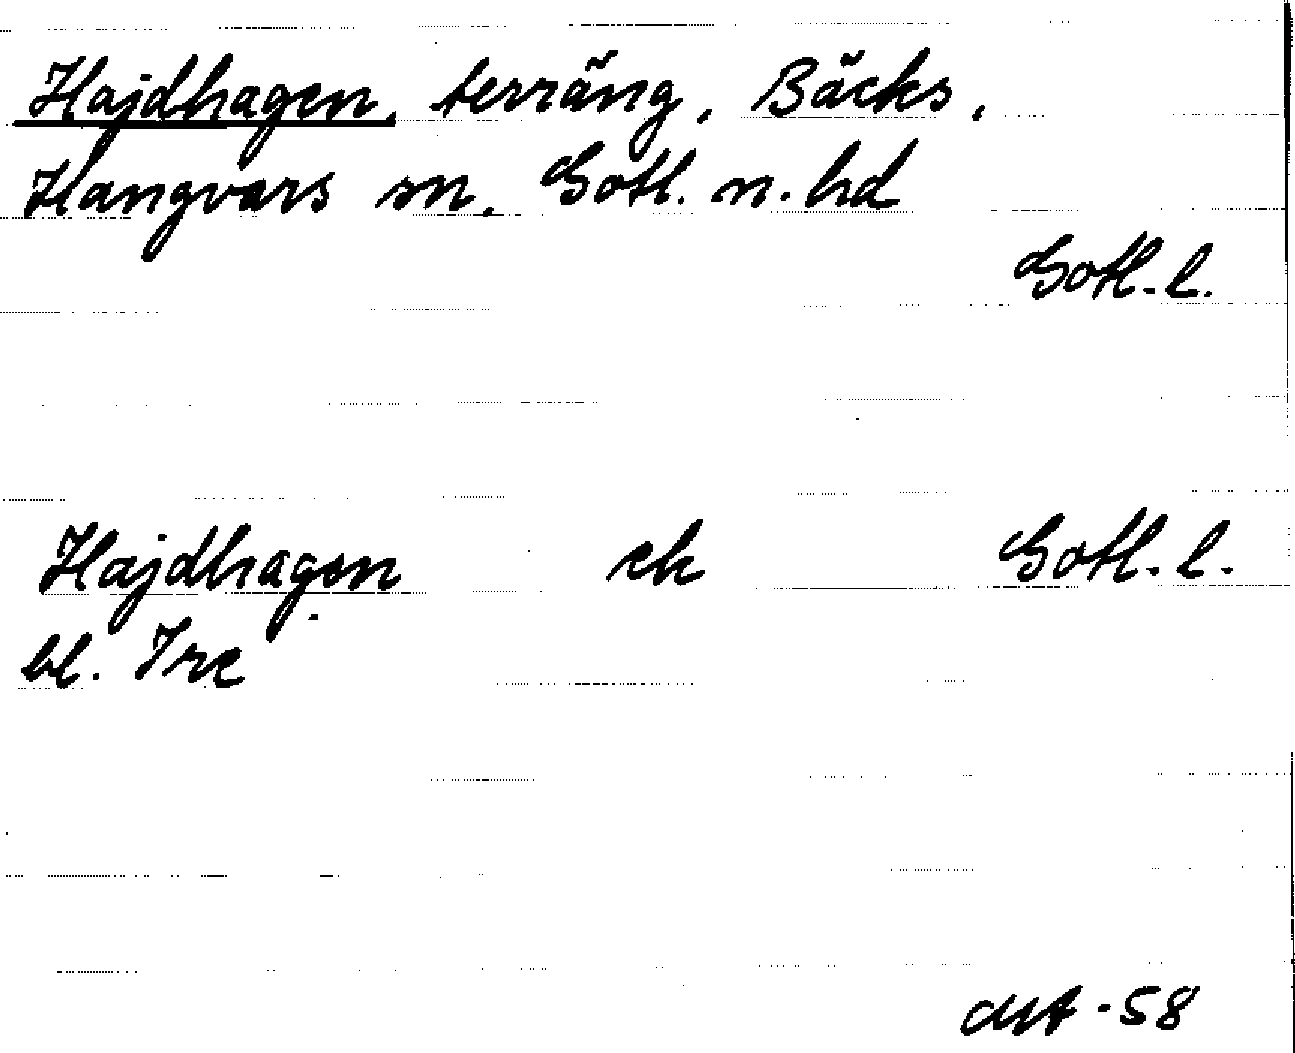 Hajdhagen, terräng, Bäcks,
Hangvars sn. Gotl. n. hd
Gotl. l.
Hajdhagen ek Gotl. l.
bl. Ire
-58